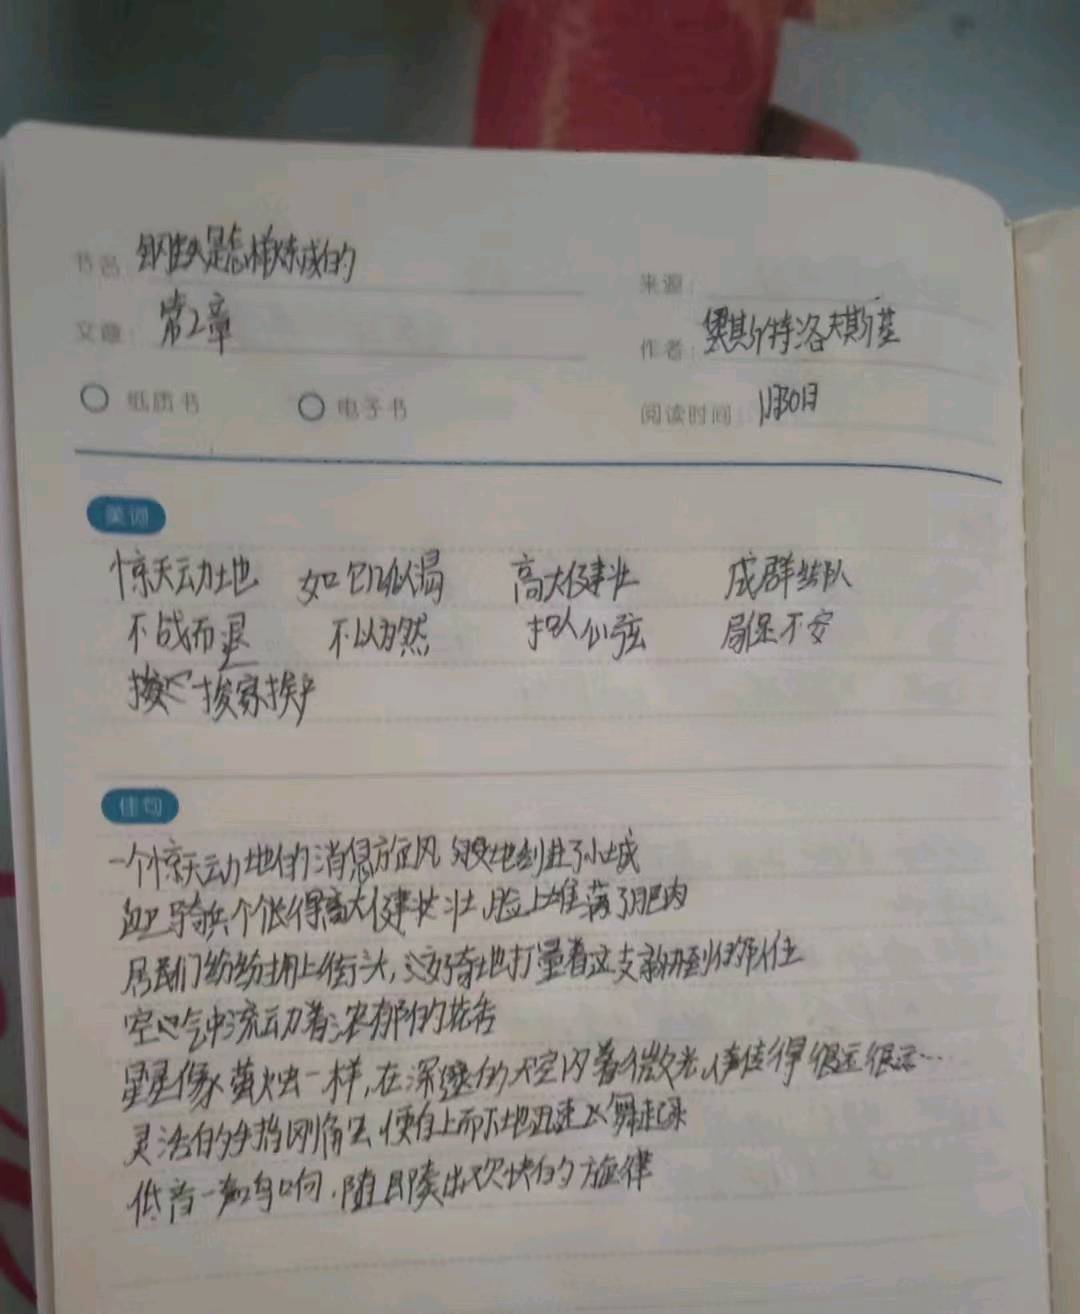 书名: 钢铁是怎样炼成的
来源:
文章: 第2章
作者: 奥斯特洛夫斯基
纸质书 电子书 阅读时间: 1月30日
美词
惊天动地 如饥似渴 高大健壮 成群结队
不战而退 不以为然 扣人心弦 局促不安
挨家挨户
佳句
一个惊天动地的消息旋风般地刮进了小城
骑兵个个长得高大健壮,脸上堆满了肥肉
居民们纷纷拥上街头,好奇地打量着这支新到的队伍
空气中流动着浓郁的花香
星星像萤火虫一样,在深邃的天空闪着微光,传得很远很远…
灵活的手指刚,便自上而下地迅速飞舞起来
低音一响,随即奏出欢快的旋律